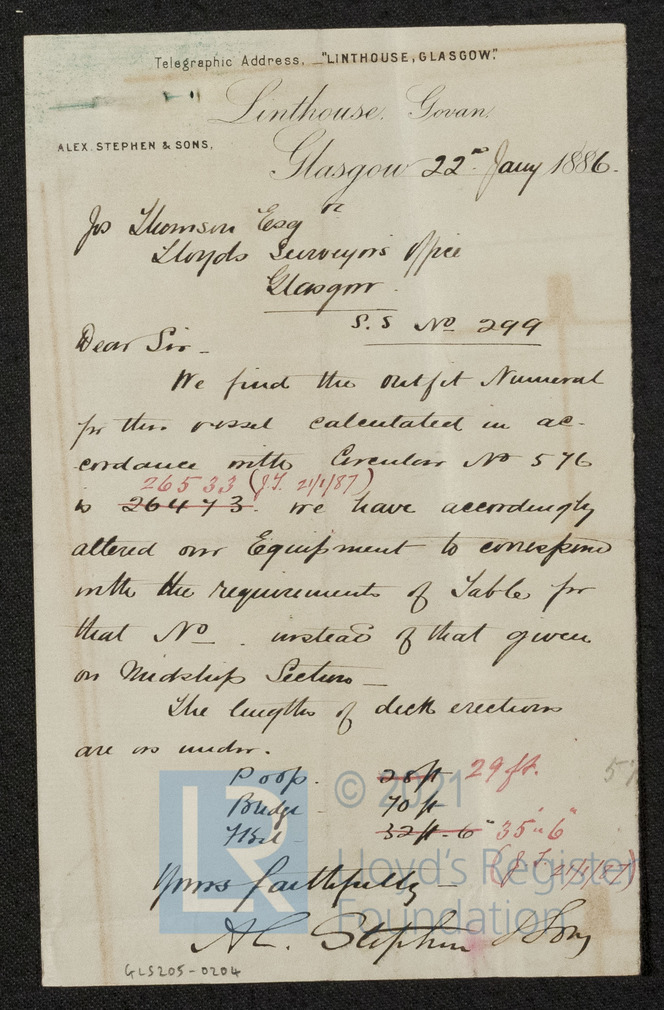 Telegraphic Address, "LINTHOUSE, GLASGOW."
Linthouse, Govan.
ALEX. STEPHEN & SONS,
Glasgow 22nd Jany 1886.
Jos Thomson Esqre
Lloyds Surveyors Office
Glasgow.
S.S No 299
Dear Sir -
We find the outfit Numeral
for this vessel calculated in ac-
cordance with Circular No 576
26533 (J.T. 21/1/87)
is 26473. We have accordingly
altered our Equipment to correspond
with the requirements of Table for
that No. instead of that given
on Midship Section -
The lengths of deck erections
are as under.
Poop. 28ft 29 ft.
Bridge - 70 ft
F'Csl - 32ft-6" 35"6"
(J.T. 21/1/87)
Yours faithfully -
A. Stephen & Sons
GLS205-0204
© 2021
Lloyd's Register
Foundation
LR